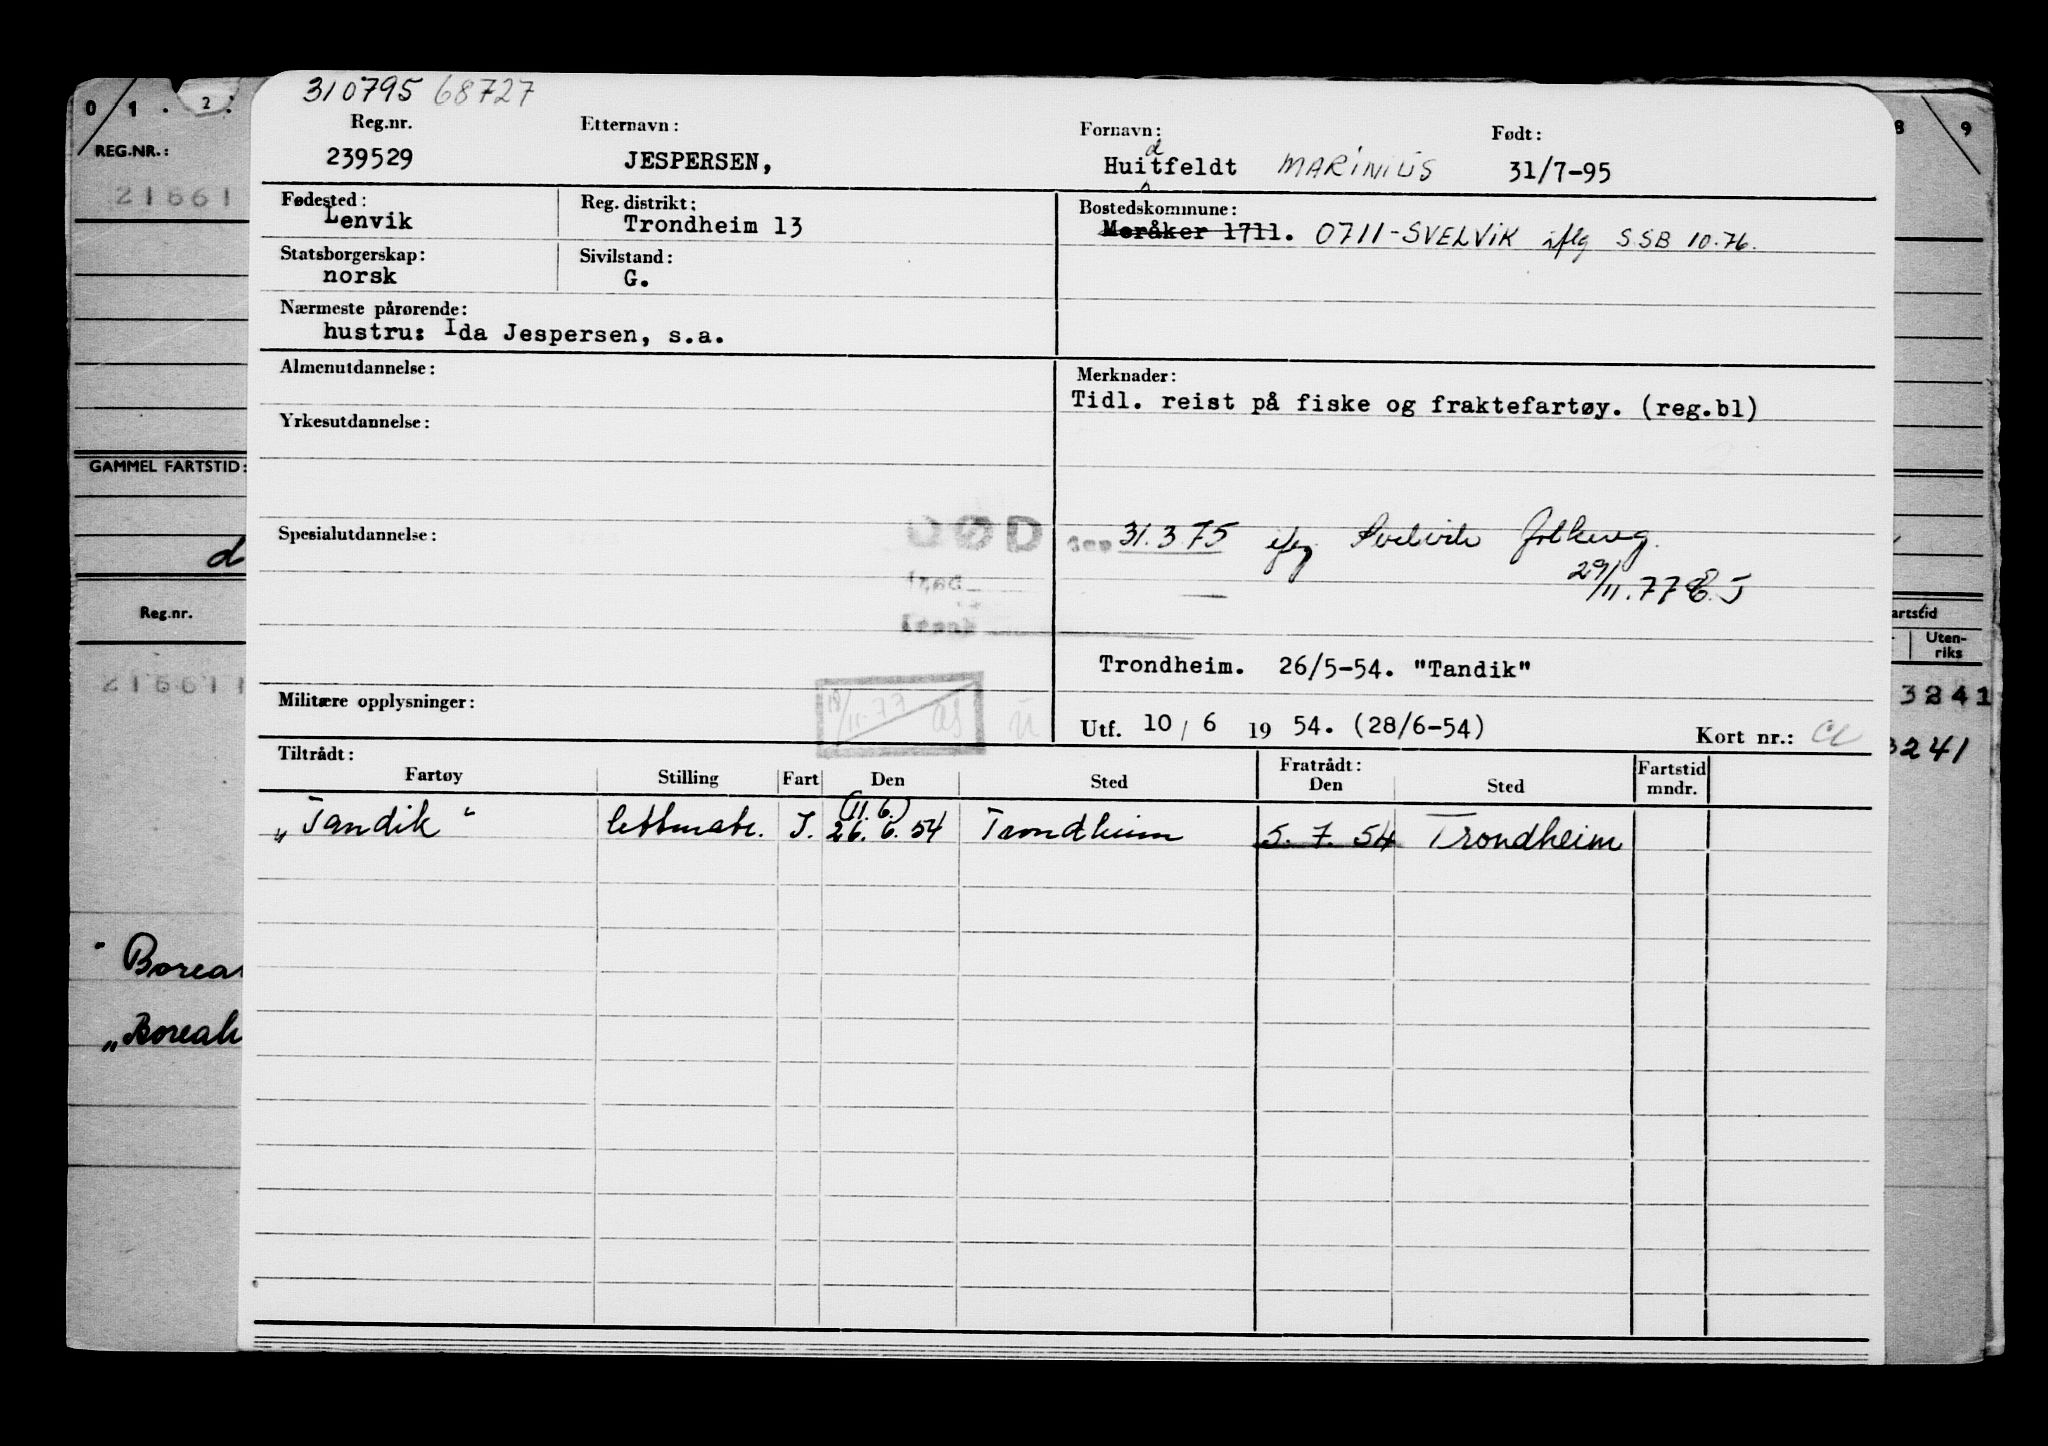 310795 68727
Reg.nr. Etternavn: Fornavn: Født:
239529 JESPERSEN, Huitdfeldt MARINIUS 31/7-95
Fødested: Reg. distrikt: Bostedskommune:
Lenvik Trondheim 13 Meråker 1711. 0711-SVELVIK iflg SSB 10.76.
Statsborgerskap: Sivilstand:
norsk G.
Nærmeste pårørende:
hustru: Ida Jespersen, s.a.
Almenutdannelse: Merknader:
Tidl. reist på fiske og fraktefartøy. (reg.bl)
Yrkesutdannelse:
Spesialutdannelse: DØD 31.3.75 iflg. Svelvik folkereg.
29/11.77
Trondheim. 26/5-54. "Tandik"
Militære opplysninger: 18/11-77
Utf. 10/6 1954. (28/6-54) Kort nr.:
Tiltrådt: Fratrådt:
Fartøy Stilling Fart Den Sted Den Sted Fartstid mndr.
(11.6.)
„Tandik" lettmatr. I. 26.6.54 Trondheim 5.7.54 Trondheim
0 1 . 2 .
REG.NR.:
21661
GAMMEL FARTSTID:
d
Reg.nr.
216611
"Borea
„Boreal
8 9
artstid
Uten-
riks
3241
3241